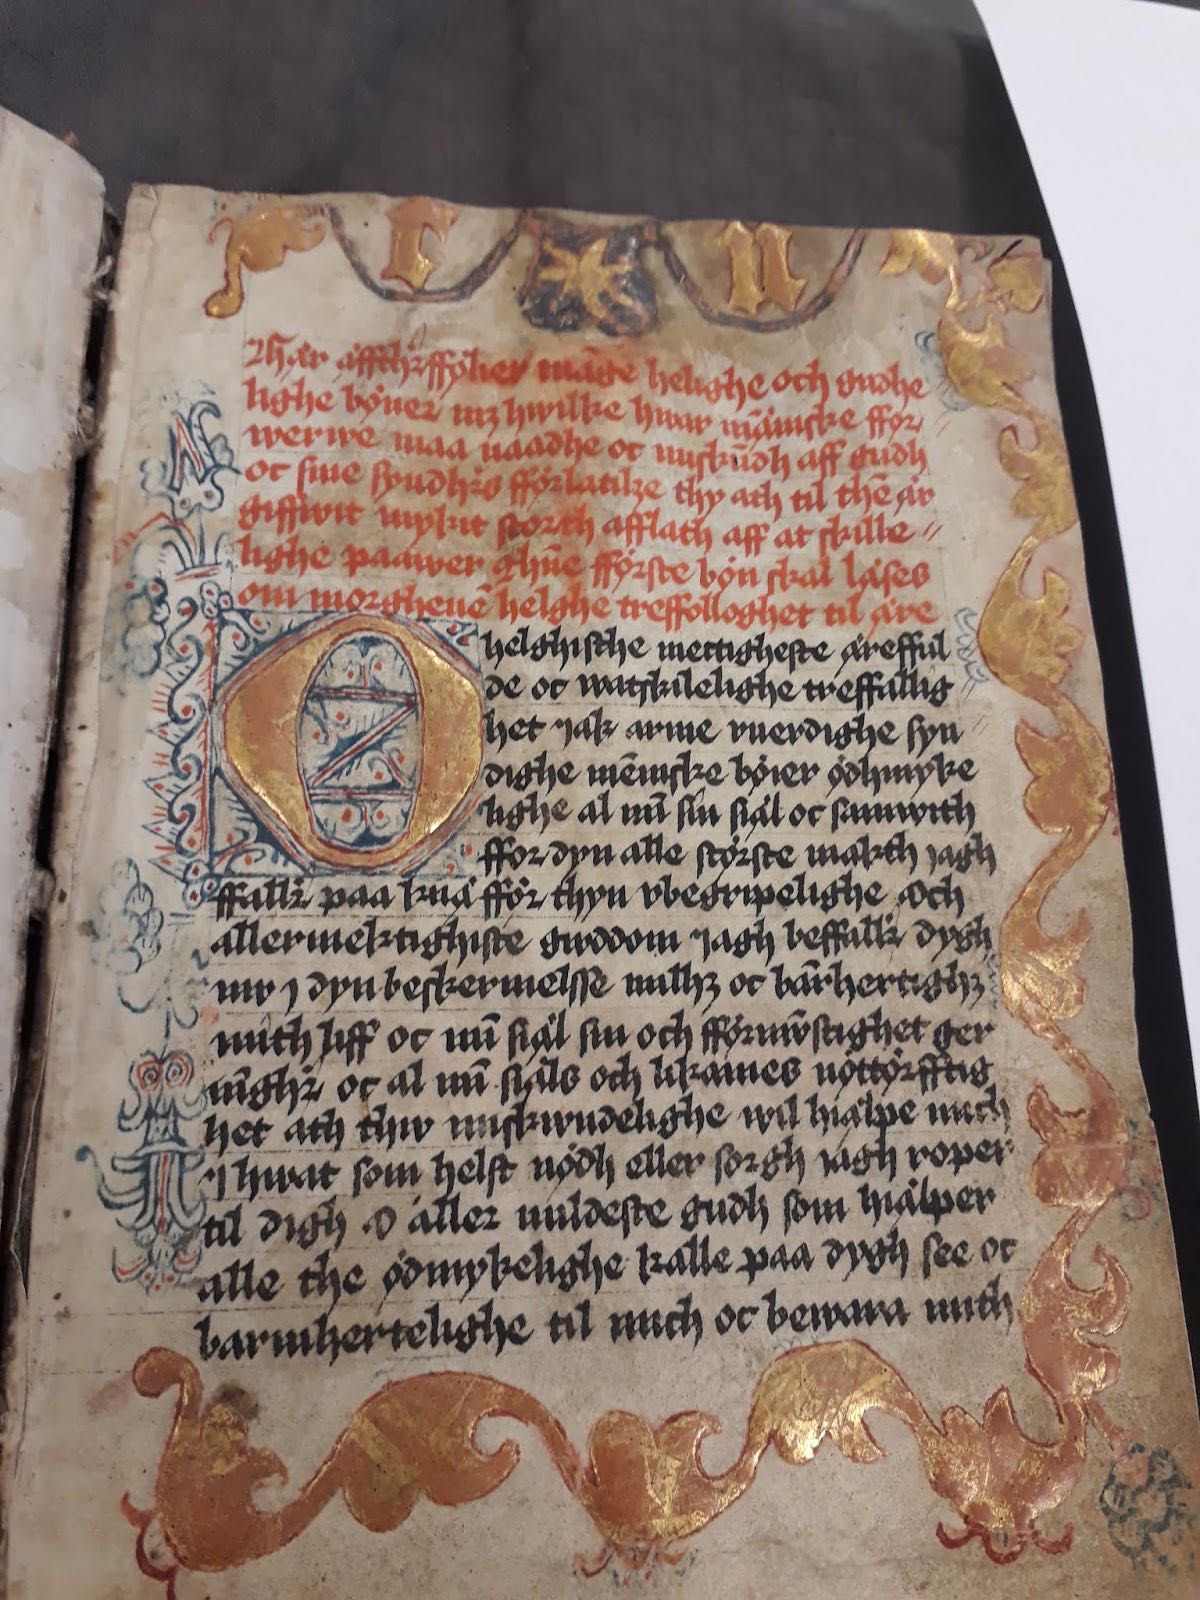 r n
Thär äffthr ffylier māge helighe och gudhe
lighe böner mz hwilke hwar mäniske ffor
werwe maa naadhe oc miskūdh aff gudh
oc sine syndhrs fförlatilze thy ath til thē är
giffwit mykit storth afflath aff at skille
lighe paawer Thñe fförste bön skal läses
om morghenē helghe treffolloghet til äre
O helghische mectigheste ärefful
de oc watskilelighe treffallig
het Jak arme vuerdighe syn
dighe mēniske böier ödhmyke
lighe al mī sin siäl oc samwith
ffor dyn alle störste makth iagh
ffallr paa knä fför thyn vbegripelighe och
allermektighiste gwddom Jagh beffallr dygh
nw J dyn beskermelsse millz oc bārhertighz
mith liff oc mī siäl sin och fförnwstighet ger
nīghr oc al mī siäls och likames nöttörfftig
het ath thw miskwndelighe wil hiälpe mich
J hwat som helst nödh eller sorgh iagh roper
til digh O aller mildeste gudh som hiälper
alle the ödmykelighe kalle paa dygh see oc
barmhertelighe til mich oc bewara mith